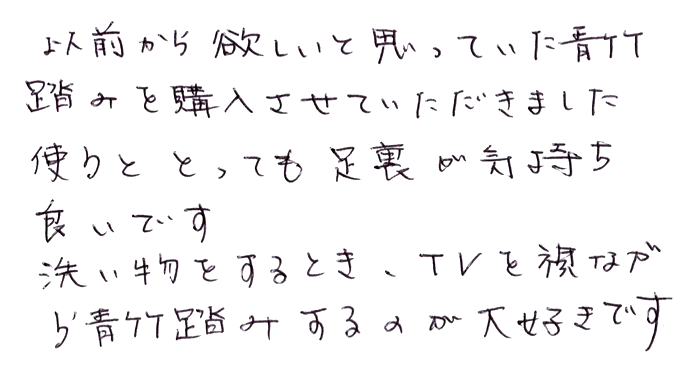 以前から欲しいと思っていた青竹
踏みを購入させていただきました
使うととっても足裏が気持ち
良いです
洗い物をするとき、TVを視なが
ら青竹踏みするのが大好きです